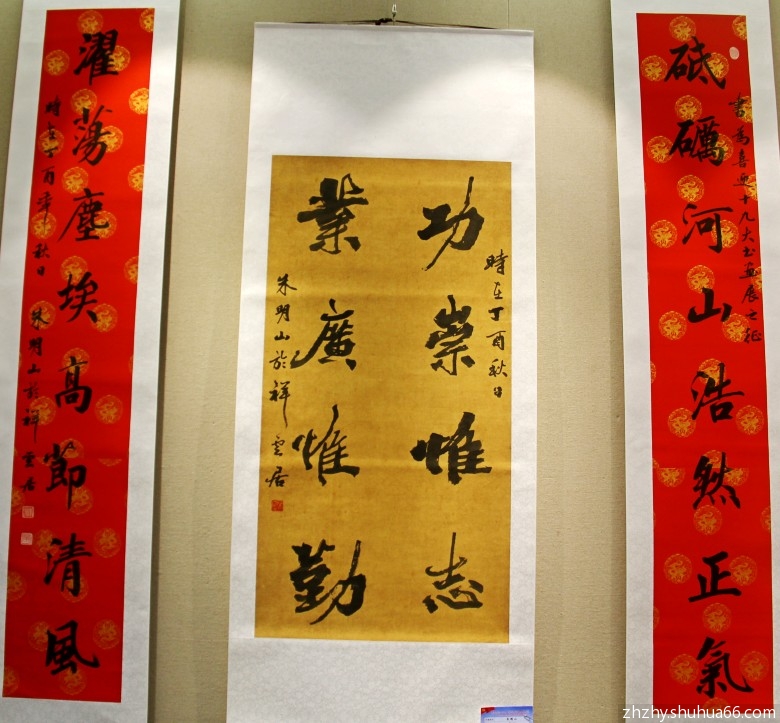 砥礪河山浩然正氣
書為喜迎十九大書畫展之征
功崇惟志
業廣惟勤
時在丁酉秋日
朱明山於祥雲居
濯蕩塵埃高節清風
時在丁酉年秋日
朱明山於祥雲居
zhzhy.shuhua66.com